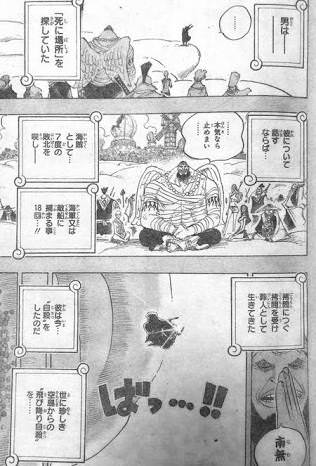 男は――
……
「死に場所」を
探していた
彼について
話す
ならば…
……
本気なら
止めまい
海賊
として…
7度の
敗北を
喫し――
海軍又は
敵船に
捕まる事
18回…!!
拷問につぐ
拷問を受け
罪人として
生きてきた
南無
彼は今…
"自殺"を
したのだ
ばっ…!!
世に珍しき
空島からの
"飛び降り自殺"
を……